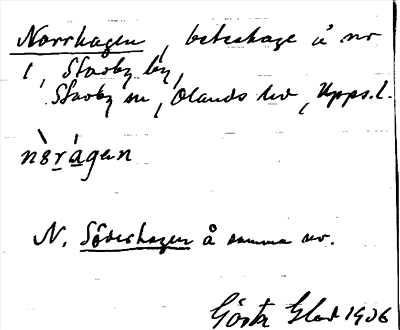 Norrhagen, beteshage å nr
1, Starby by,
Starby sn, Olands hd, Upps. l.
nòrágan
N. Söderhagen å samma nr.
Gösta 1906